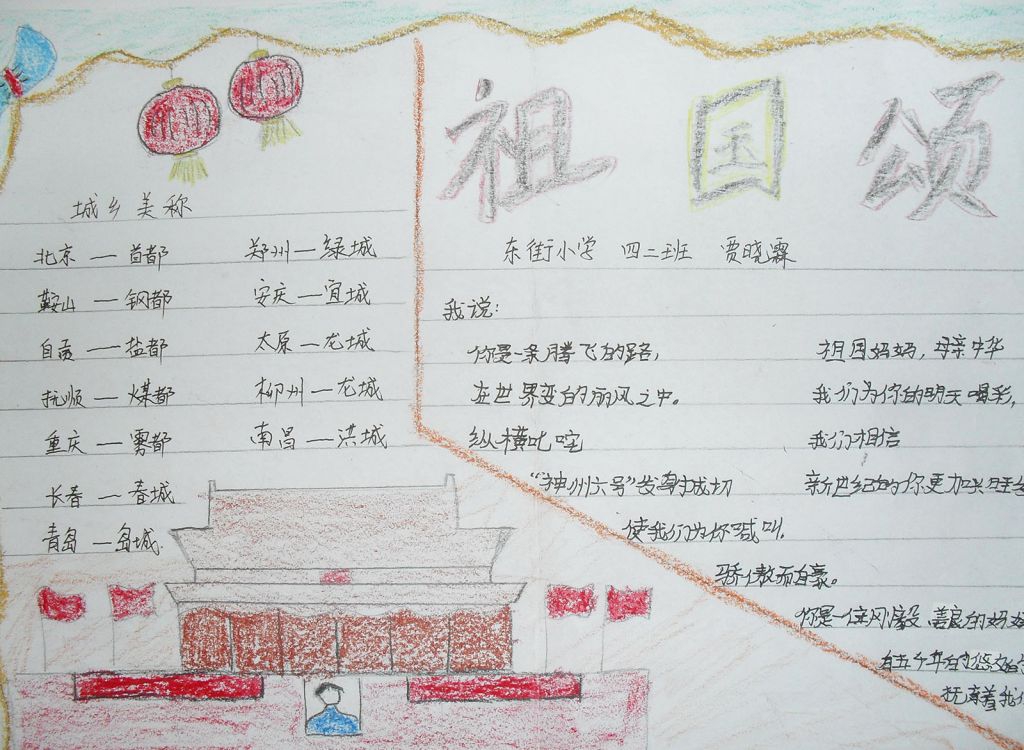 祖国颂
东街小学 四二班 贾晓霖
城乡美称
北京—首都 郑州—绿城
鞍山—钢都 安庆—宜城
自贡—盐都 太原—龙城
抚顺—煤都 柳州—龙城
重庆—雾都 南昌—洪城
长春—春城
青岛—岛城
我说:
你是一条腾飞的路,
在世界变的丽风之中。
纵横叱咤
“神州六号”发射成功
使我们为你喊叫.
骄傲而自豪。
你是一位刚毅、善良的妈妈
有五千年的悠
抚育着我们
祖国妈妈,母亲中华
我们为你的明天喝彩,
我们相信
新世纪的你更加兴旺